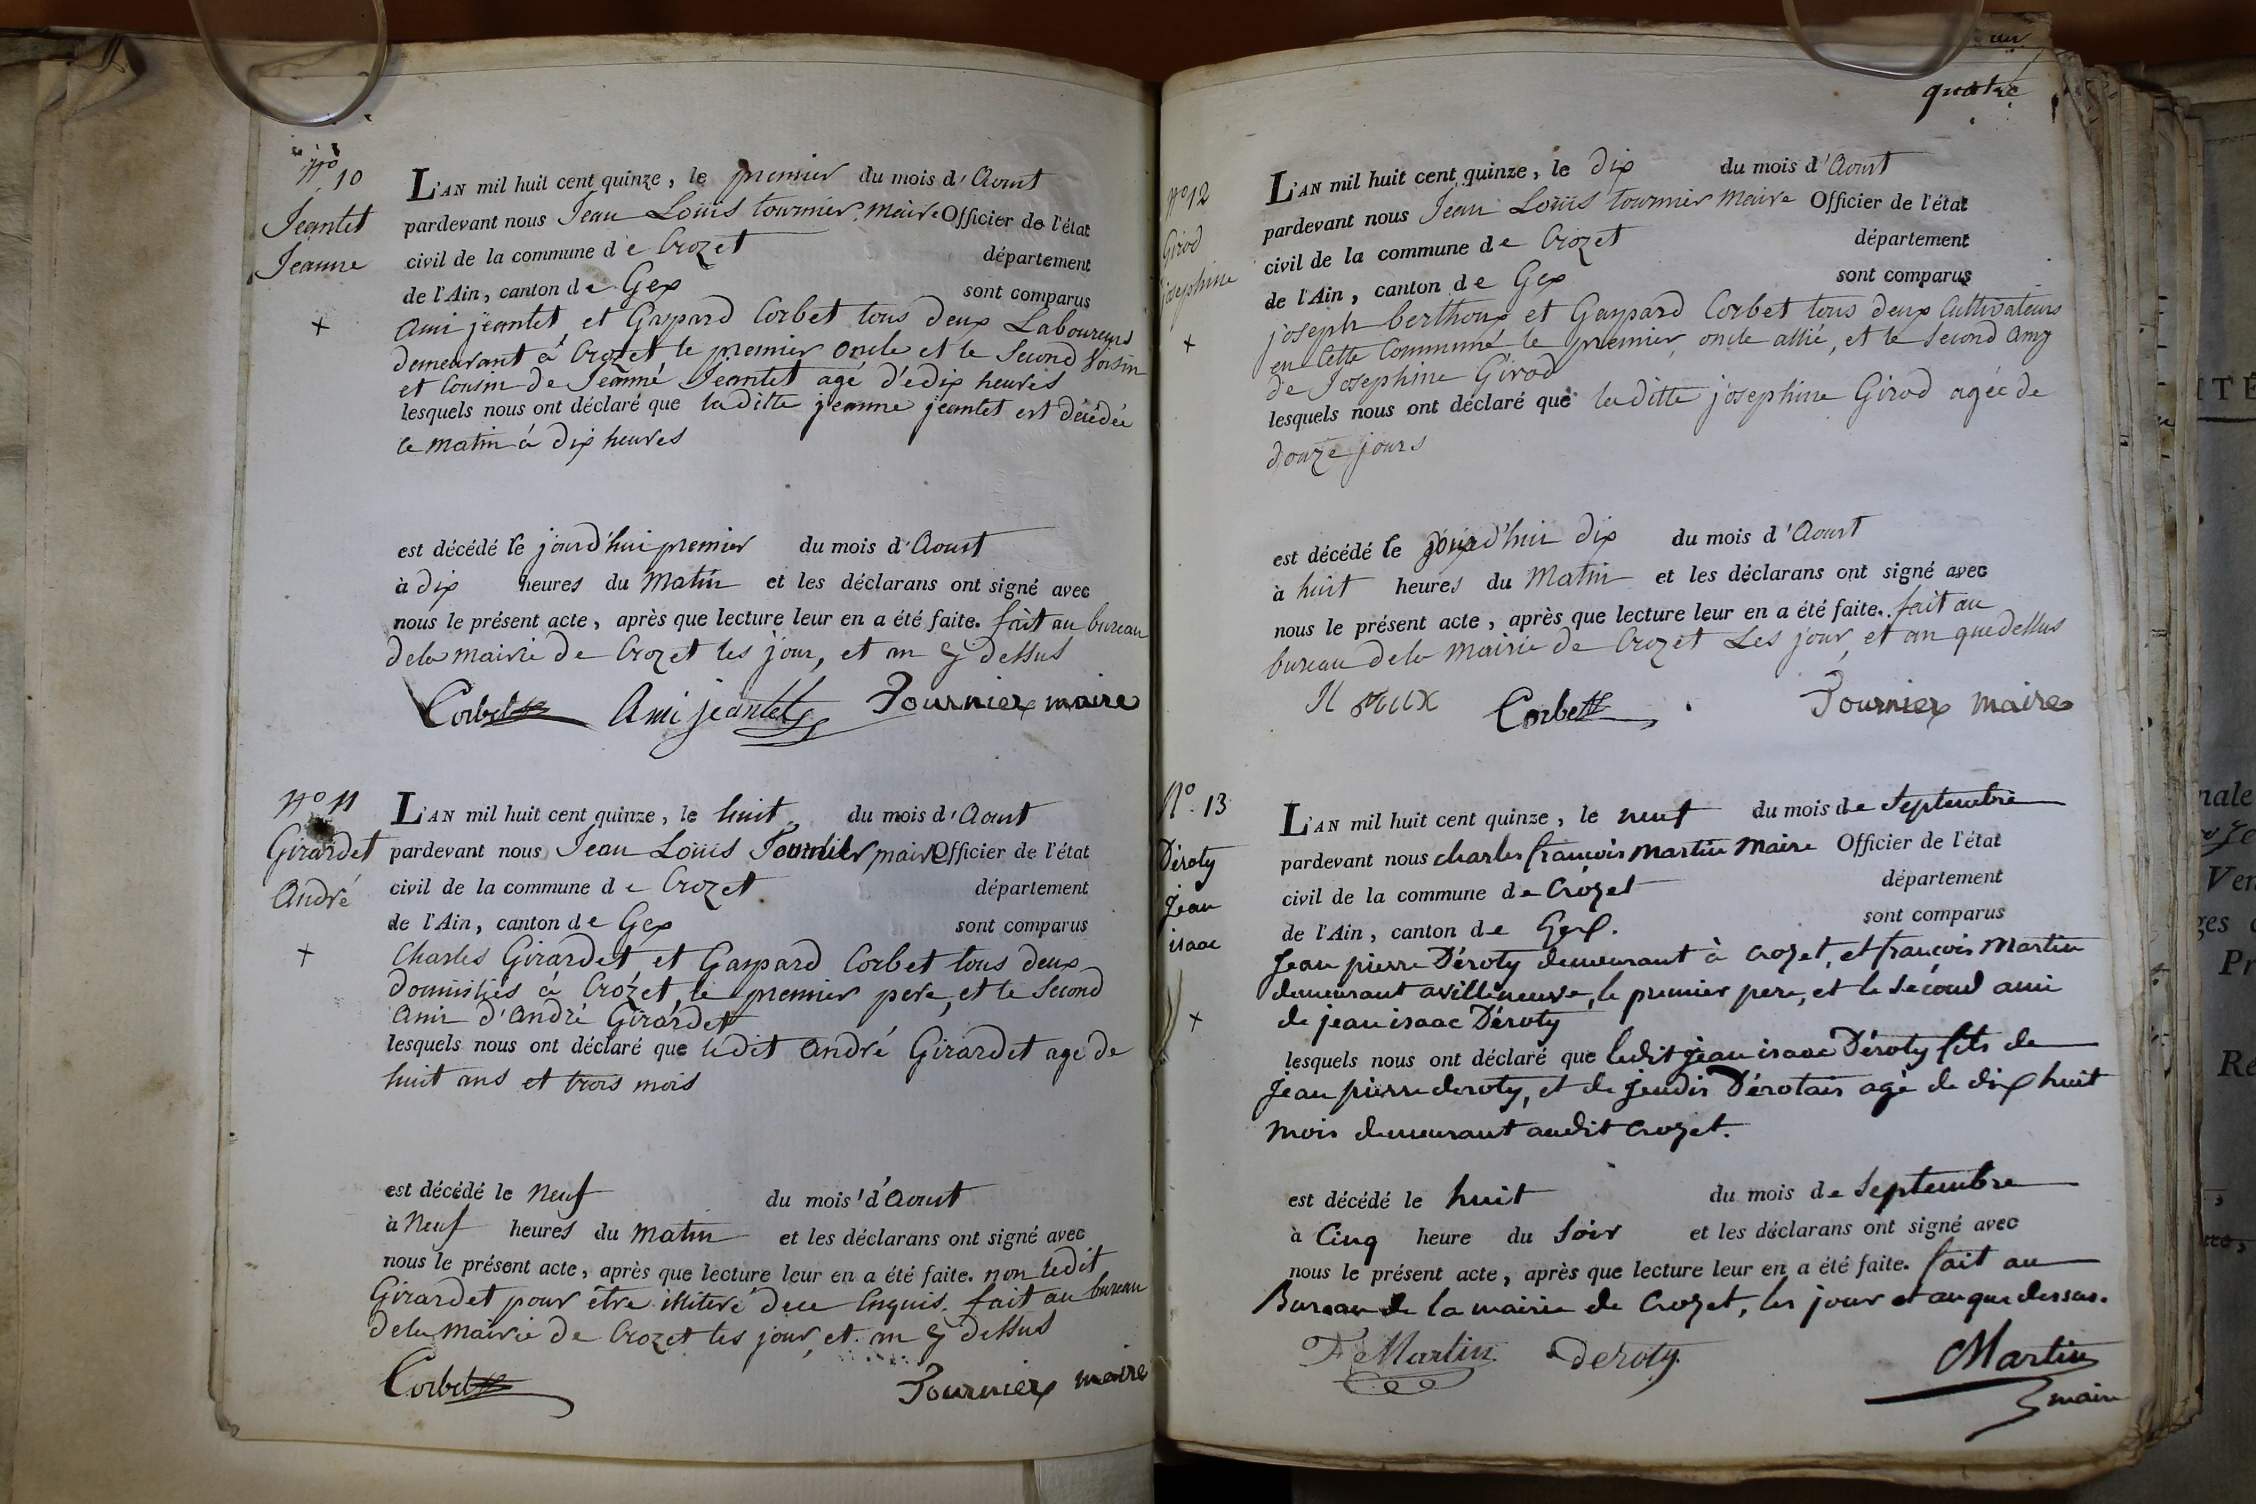 N° 10
Jeantet
Jeanne
+
L'AN mil huit cent quinze, le premier du mois d'Aoust
pardevant nous Jean Louis tournier, maire Officier de l'état
civil de la commune de Crozet département
de l'Ain, canton de Gex sont comparus
Ami jeantet, et Gaspard Corbet tous deux Laboureurs
demeurant á Crozet le premier oncle et le second voisin
et cousin de Jeanne Jeantet agé d'é dix heures
lesquels nous ont déclaré que laditte jeanne jeantet est décédée
ce matin á dix heures
est décédé le jourd'hui premier du mois d'Aoust
à dix heures du Matin et les déclarans ont signé avec
nous le présent acte, après que lecture leur en a été faite. fait au bureau
dela mairie de Crozet les jour, et an cy dessus
Corbet Ami jeantet Tournier maire
N° 11
Girardet
André
+
L'AN mil huit cent quinze, le huit du mois d'Aoust
pardevant nous Jean Louis Tournier, maire Officier de l'état
civil de la commune de Crozet département
de l'Ain, canton de Gex sont comparus
Charles Girardet et Gaspard Corbet tous deux
domisiliés á Crozet, le premier pere, et le second
Ami d'André Girardet
lesquels nous ont déclaré que ledit André Girardet age de
huit ans et trois mois
est décédé le Neuf du mois d'Aoust
à Neuf heures du matin et les déclarans ont signé avec
nous le présent acte, après que lecture leur en a été faite. non ledit
Girardet pour être illiteré dece Enquis. fait au bureau
dela Mairie de Crozet les jour, et an cy dessus
Corbet Tournier maire
quatre
N° 12
Girod
josephine
+
L'AN mil huit cent quinze, le dix du mois d'Aoust
pardevant nous Jean Louis tournier maire Officier de l'état
civil de la commune de Crozet département
de l'Ain, canton de Gex sont comparus
joseph berthoux et Gaspard Corbet tous deux Cultivateurs
en cette Commune le premier, oncle allié, et le second amy
de Josephine Girod
lesquels nous ont déclaré que laditte josephine Girod agée de
douze jours
est décédé le jourd'hui dix du mois d'Aoust
à huit heures du Matin et les déclarans ont signé avec
nous le présent acte, après que lecture leur en a été faite. fait au
bureau dela Mairie de Crozet Les jour, et an que dessus
Corbet Tournier maire
N° 13
Déroty
Jean
isaac
+
L'AN mil huit cent quinze, le neuf du mois de Septembre
pardevant nous charles françois Martin Maire Officier de l'état
civil de la commune de Crozet département
de l'Ain, canton de Gex. sont comparus
Jean pierre Déroty demeurant à crozet, et françois Martin
demeurant a villeneuve, le premier pere, et le sécond ami
de jean isaac Déroty
lesquels nous ont déclaré que ledit Jean isaac Déroty fils de
Jean pierre deroty, et de Dérotais agé de dix huit
mois demeurant audit crozet.
est décédé le huit du mois de Septembre
à Cinq heure du Soir et les déclarans ont signé avec
nous le présent acte, après que lecture leur en a été faite. fait au
Bureau de la mairie de Crozet, les jour et an que dessus.
Fc Martin deroty. CMartin
maire